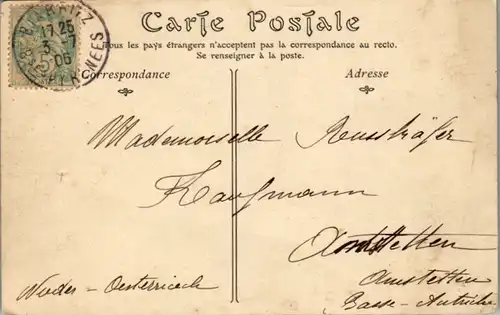 Carte Postale
Tous les pays étrangers n'acceptent pas la correspondance au recto.
Se renseigner à la poste.
Correspondance
Adresse
BIARRITZ
17 25
3 7
06
PYRENEES
Mademoiselle
Kaufmann
Amstetten
Amstetten
Nieder-Oesterreich
Basse-Autriche